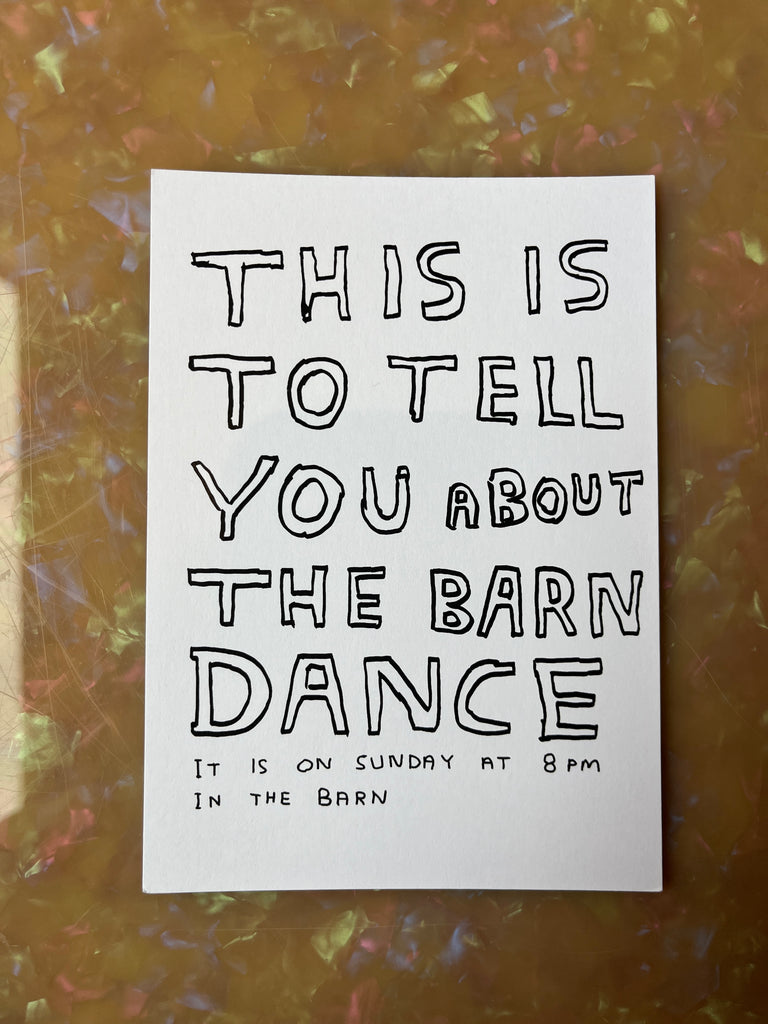 THIS IS
TO TELL
YOU ABOUT
THE BARN
DANCE
IT IS ON SUNDAY AT 8PM
IN THE BARN